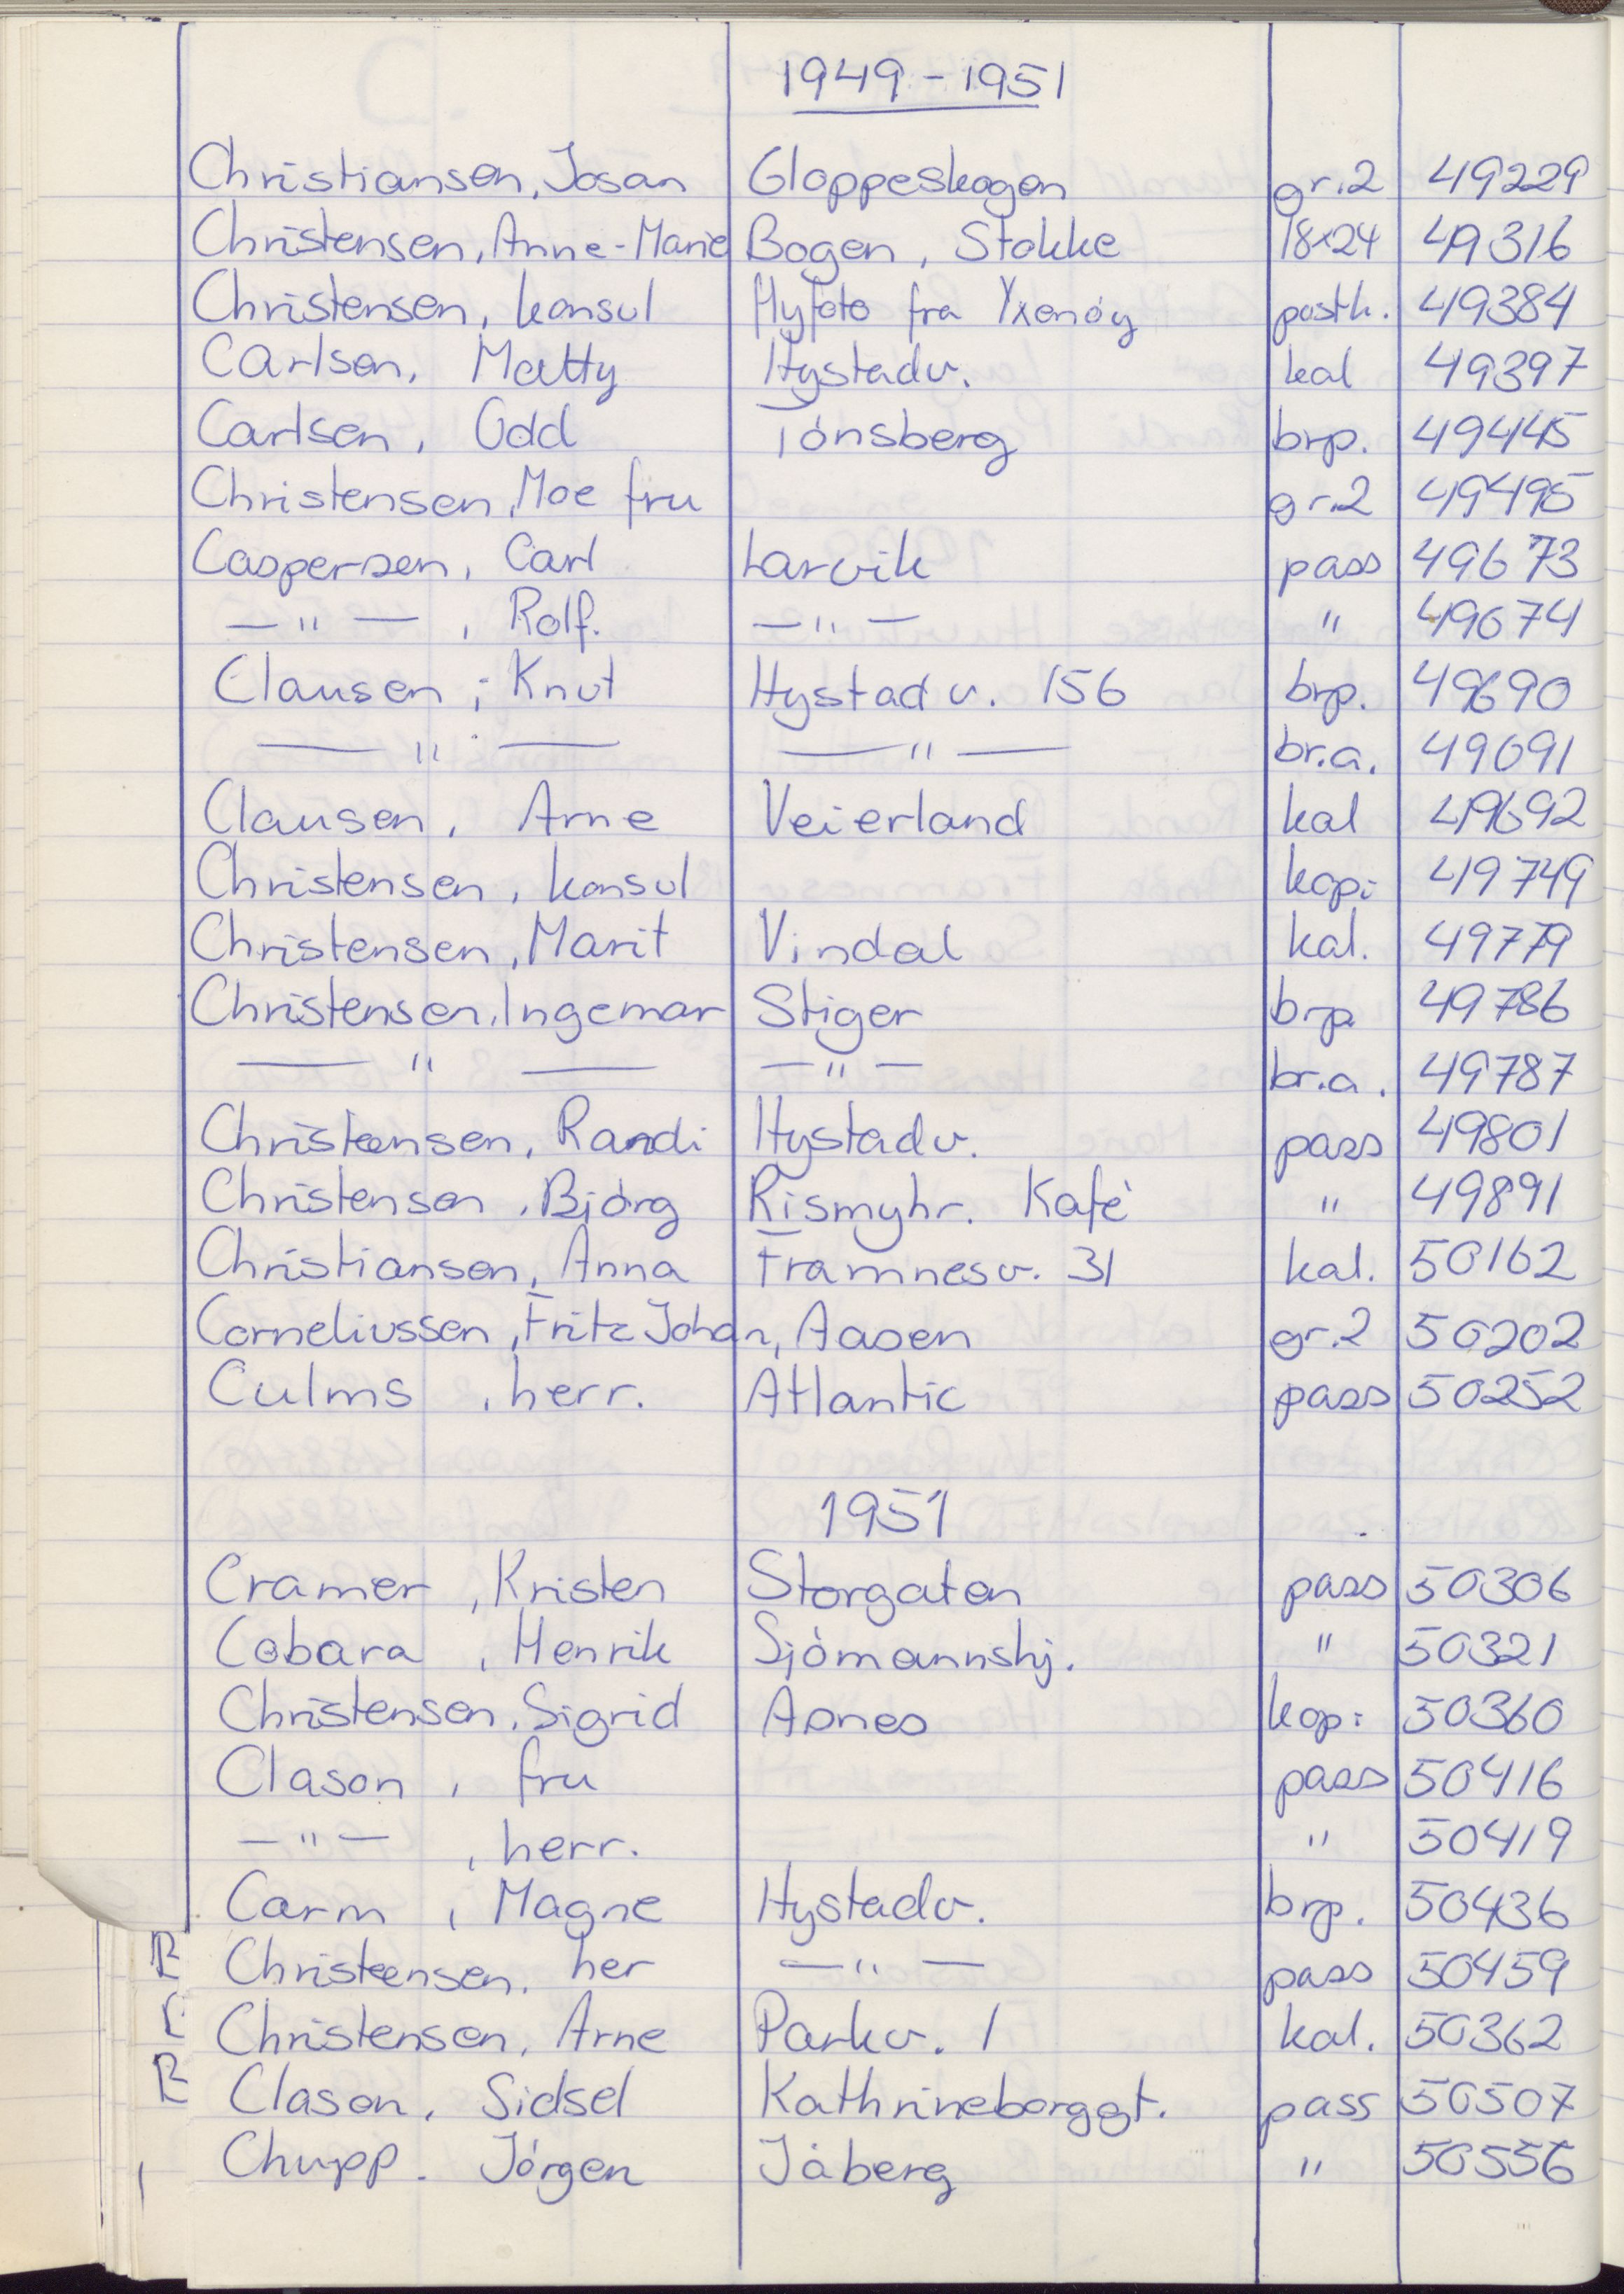 1949-1951
Christiansen, Josan Gloppeskogen gr.2 49229
Christensen, Anne-Marie Bogen, Stokke 18x24 49316
Christensen, konsul Flyfoto fra Yxenöy postk. 49384
Carlsen, Matty Hystadv. kal 49397
Carlsen, Odd Tönsberg brp. 49445
Christensen, Moe fru gr.2 49495
Caspersen, Carl Larvik pass 49673
— " — , Rolf. — " — " 49674
Clausen, Knut Hystadv. 156 brp. 49690
— " — — " — br.a. 49691
Clausen, Arne Veierland kal 49692
Christensen, konsul kopi 49749
Christensen, Marit Vindal kal. 49779
Christensen, Ingemar Stiger brp 49786
— " — — " — br.a. 49787
Christensen, Randi Hystadv. pass 49801
Christensen, Björg Rismyhr. Kafé " 49891
Christiansen, Anna Framnesv. 31 kal. 50162
Corneliussen, Fritz Johan, Aasen gr.2 50202
Culms, herr. Atlantic pass 50252
1951
Cramer, Kristen Storgaten pass 50306
Cobara, Henrik Sjömannshj. " 50321
Christensen, Sigrid Asnes kopi 50360
Clason, fru pass 50416
— " — , herr. " 50419
Carm, Magne Hystadv. brp. 50436
Christensen, her — " — pass 50459
Christensen, Arne Parkv. 1 kal. 50362
Clason, Sidsel Kathrineborggt. pass 50507
Chupp. Jörgen Jåberg " 50556